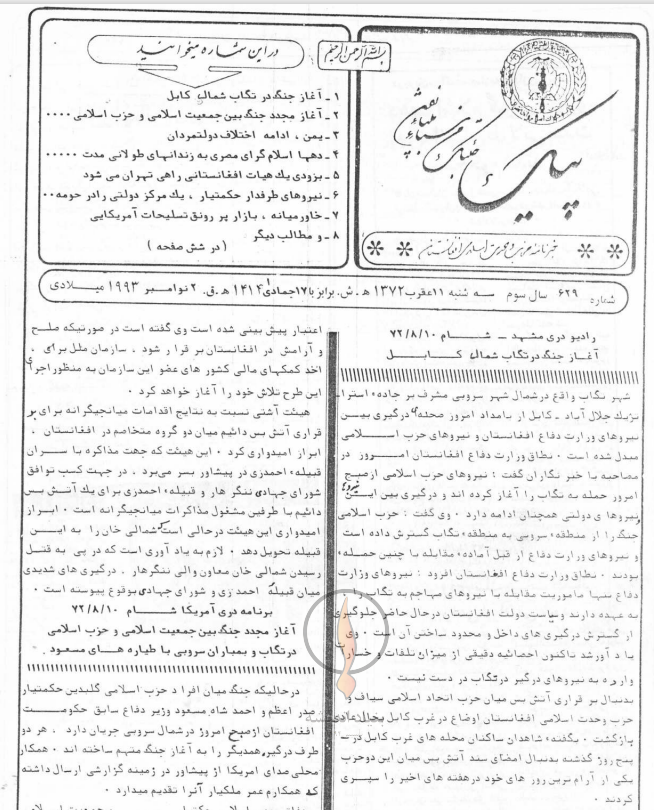 بسم الله الرحمن الرحیم
پیک
خبرنامه
شماره ۶۲۹ سال سوم سه شنبه ۱۱ عقرب ۱۳۷۲ ه‍.ش. برابر با ۱۷ جمادی ۱ ۱۴۱۴ ه‍.ق. ۲ نوامبر ۱۹۹۳ میلادی
در این شماره میخوانید
۱ـ آغاز جنگ در تگاب شمالی کابل
۲ـ آغاز مجدد جنگ بین جمعیت اسلامی و حزب اسلامی ....
۳ـ یمن ، ادامه اختلاف دولتمردان
۴ـ دهها اسلام گرای مصری به زندانهای طولانی مدت .....
۵ـ بزودی یك هیات افغانستانی راهی تهران می شود
۶ـ نیروهای طرفدار حکمتیار ، یك مرکز دولتی را در حومه..
۷ـ خاورمیانه ، بازار پر رونق تسلیحات آمریکایی
۸ـ و مطالب دیگر
( در شش صفحه )
رادیو دری مشهد ـ شام ۷۲/۸/۱۰
آغاز جنگ در تگاب شمال کابل
شهر تگاب واقع در شمال شهر سروبی مشرف بر جاده
نزدیك جلال آباد ـ کابل از بامداد امروز صحنهٔ درگیری بین
نیروهای وزارت دفاع افغانستان و نیروهای حزب اسلامی
مبدل شده است . نطاق وزارت دفاع افغانستان امروز در
مصاحبه با خبر نگاران گفت : نیروهای حزب اسلامی از صبح
امروز حمله به تگاب را آغاز کرده اند و درگیری بین این نیروها و
نیروها ی دولتی همچنان ادامه دارد . وی گفت : حزب اسلامی
جنگ را از منطقهٔ سروبی به منطقهٔ تگاب گسترش داده است
و نیروهای وزارت دفاع از قبل آمادهٔ مقابله با چنین حمله
بودند . نطاق وزارت دفاع افغانستان افزود : نیروهای وزارت
دفاع تنها ماموریت مقابله با نیروهای مهاجم به تگاب را
به عهده دارند و سیاست دولت افغانستان در حال حاضر جلوگیری
از گسترش درگیری های داخل و محدود ساختن آن است . وی
یاد آور شد تاکنون احصائیه دقیقی از میزان تلفات و خسارات
وارده به نیروهای درگیر در تگاب در دست نیست .
بدنبال بر قراری آتش بس میان حزب اتحاد اسلامی سیاف و
حزب وحدت اسلامی افغانستان اوضاع در غرب کابل بحال عادی
بازگشت . بگفتهٔ شاهدان ساکنان محله های غرب کابل در
پنج روز گذشته بدنبال امضای سند آتش بس میان این دو حزب
یکی از آرام ترین روز های خود در هفته های اخیر را سپری
کردند
اعتبار پیش بینی شده است وی گفته است در صورتیکه صلح
و آرامش در افغانستان بر قرار شود ، سازمان ملل برای
اخذ کمکهای مالی کشور های عضو این سازمان به منظور اجرای
این طرح تلاش خود را آغاز خواهد کرد .
هیئت آشتی نسبت به نتایج اقدامات میانجیگرانه برای بر
قراری آتش بس دائیم میان دو گروه متخاصم در افغانستان ،
ابراز امیدواری کرد . این هیئت که جهت مذاکره با سران
قبیلهٔ احمدزی در پیشاور بسر می‌برد . در جهت کسب توافق
شورای جهادی ننگرهار و قبیلهٔ احمدزی برای یك آتش بس
دائیم با طرفین مشغول مذاکرات میانجیگرانه است . ابراز
امیدواری این هیئت در حالی است که شمالی خان را به این
قبیله تحویل دهد . لازم به یاد آوری است که در پی به قتل
رسیدن شمالی خان معاون والی ننگرهار . درگیری های شدیدی
میان قبیلهٔ احمدزی و شورای جهادی بوقوع پیوسته است .
برنامه دری آمریکا شام ۷۲/۸/۱۰
آغاز مجدد جنگ بین جمعیت اسلامی و حزب اسلامی
در تگاب و بمباران سروبی با طیاره های مسعود .
در حالیکه جنگ میان افراد حزب اسلامی گلبدین حکمتیار
صدر اعظم و احمد شاه مسعود وزیر دفاع سابق حکومت
افغانستان از صبح امروز در شمال سروبی جریان دارد . هر دو
طرف درگیر همدیگر را به آغاز جنگ متهم ساخته اند . همکار
محلی صدای امریکا از پیشاور در زمینه گزارشی ارسال داشته
که همکارم عمر ملکیار آنرا تقدیم میدارد .